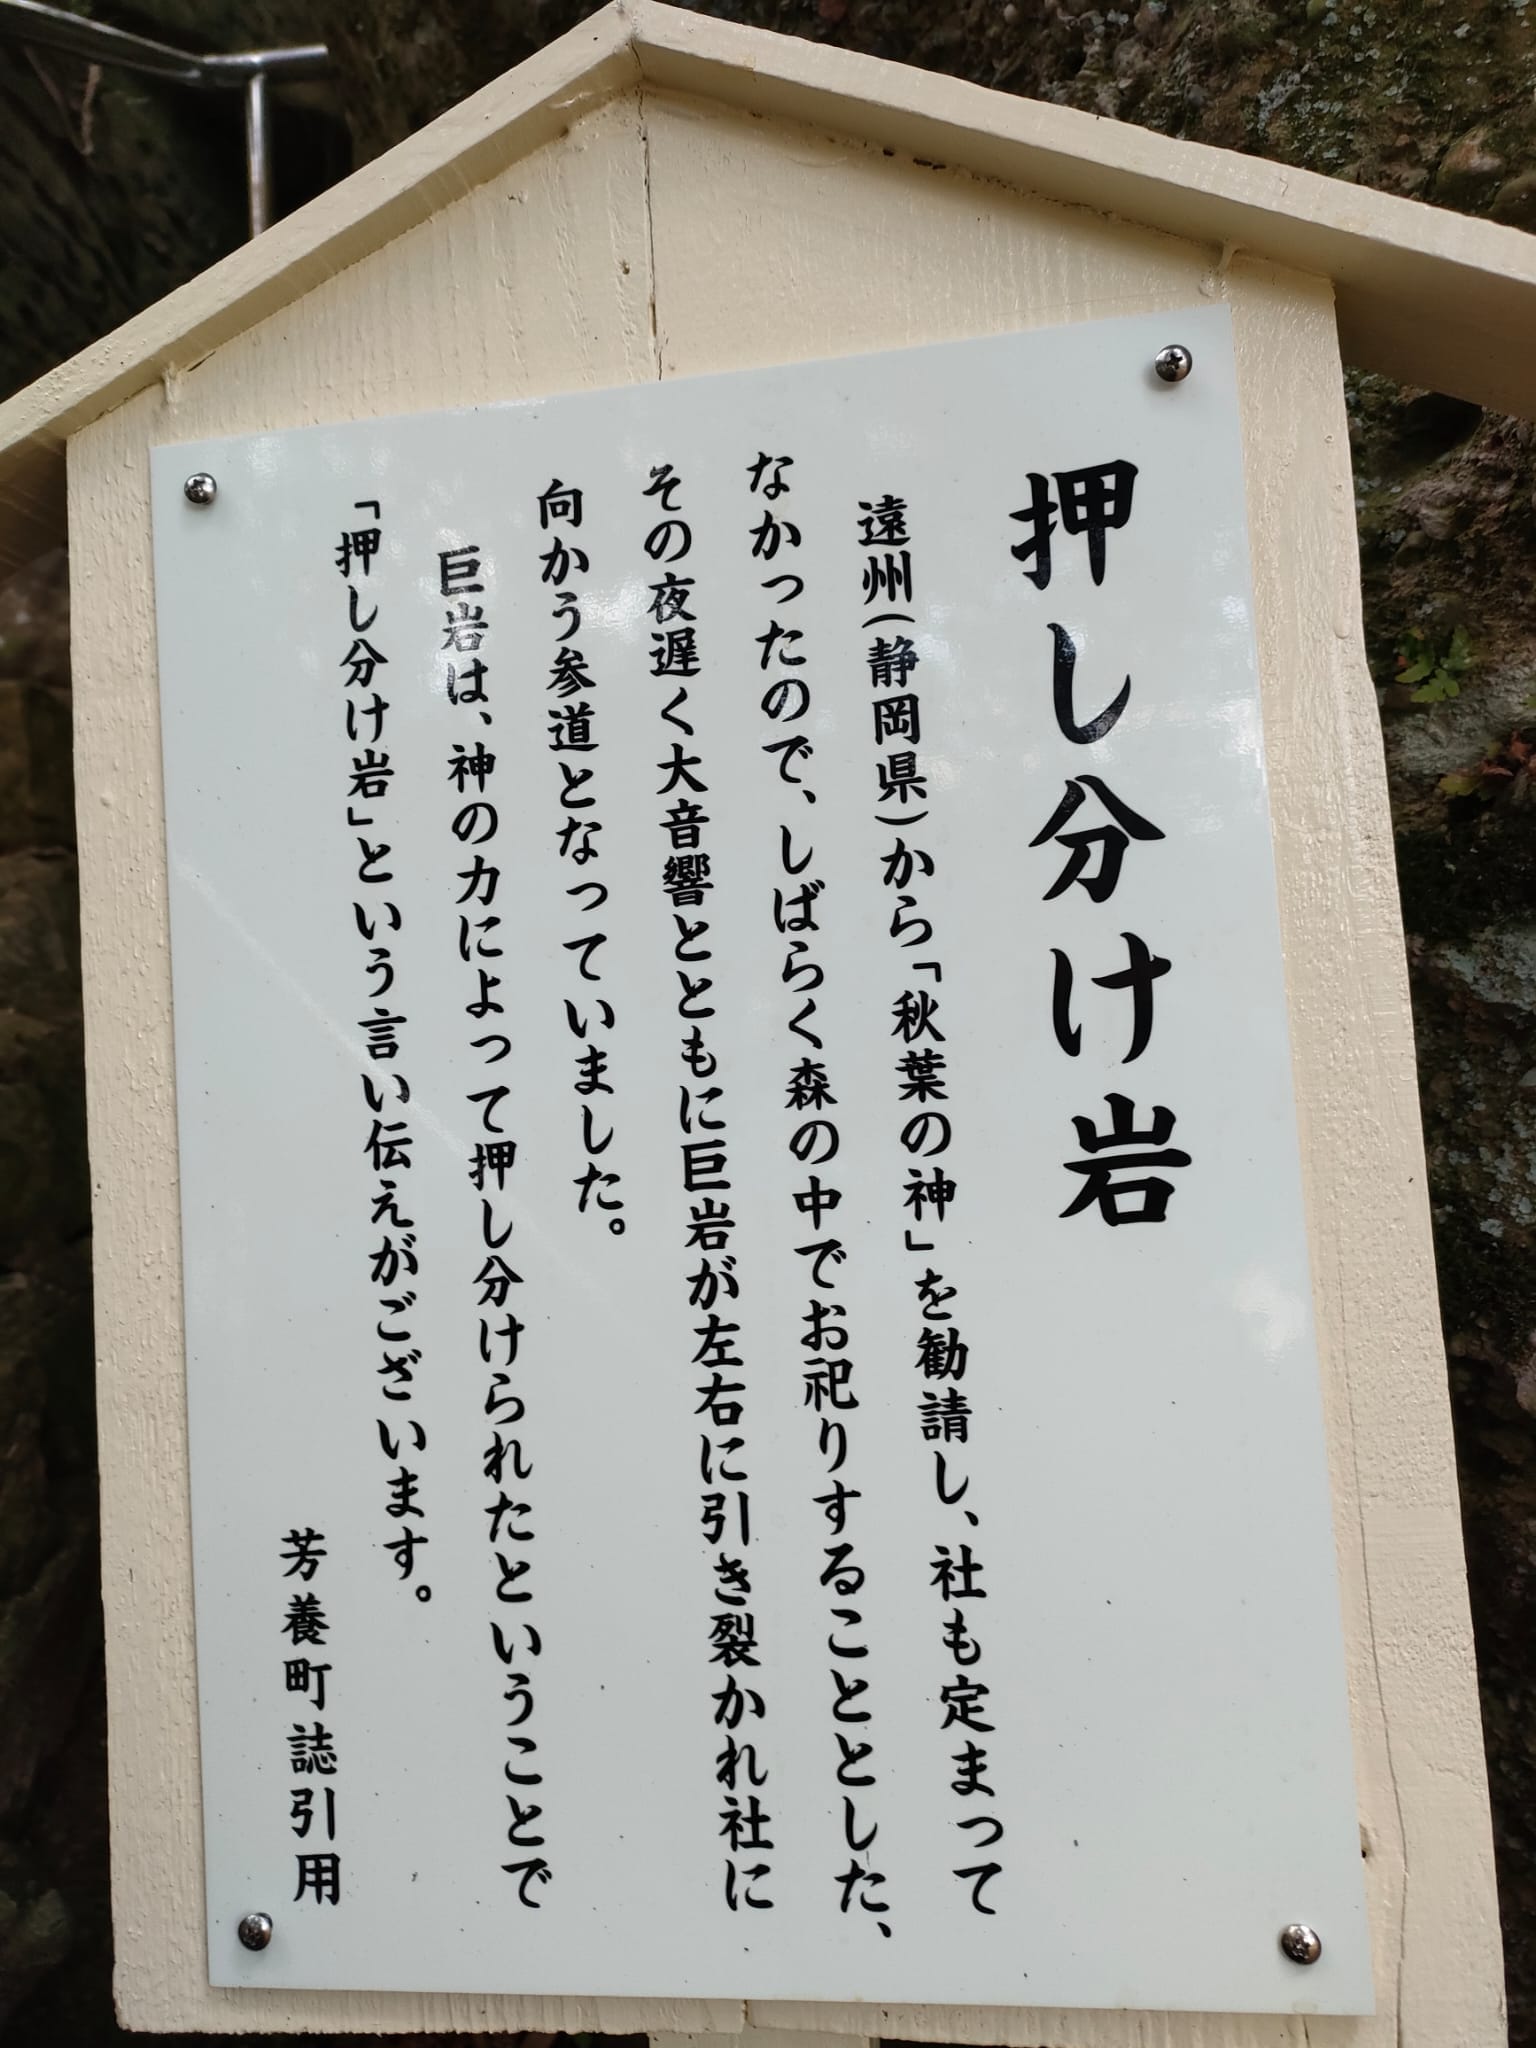 押し分け岩
遠州(静岡県)から「秋葉の神」を勧請し、社も定まって
なかったので、しばらく森の中でお祀りすることとした、
その夜遅く大音響とともに巨岩が左右に引き裂かれ社に
向かう参道となっていました。
巨岩は、神の力によって押し分けられたということで
「押し分け岩」という言い伝えがございます。
芳養町誌引用